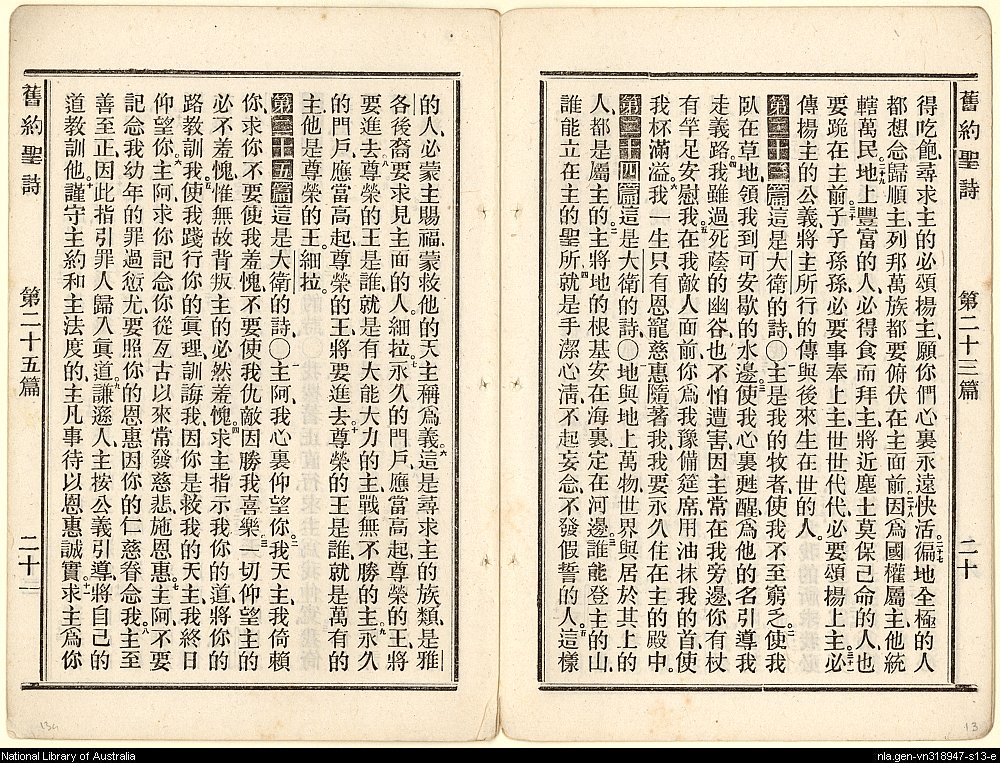 舊約聖詩 第二十三篇 二十
得吃飽、尋求主的必頌揚主、願你們心裏永遠快活。二十七徧地全極的人
都想念歸順主、列邦萬族都要俯伏在主面前。二十八因爲國權屬主、他統
轄萬民。二十九地上豐富的人、必得食而拜主、將近塵土莫保己命的人、也
要跪在主前。三十子子孫孫、必要事奉上主、世世代代、必要頌揚上主。三十一必
傳揚主的公義、將主所行的、傳與後來生在世的人。
第二十三篇這是大衛的詩、〇一主是我的牧者、使我不至窮乏。二使我
臥在草地、領我到可安歇的水邊。三使我心裏甦醒、爲他的名引導我
走義路。四我雖過死蔭的幽谷、也不怕遭害、因主常在我旁邊、你有杖
有竿、足安慰我。五在我敵人面前、你爲我豫備筵席、用油抹我的首、使
我杯滿溢。六我一生只有恩寵慈惠隨著我、我要永久住在主的殿中。
第二十四篇這是大衛的詩、〇一地與地上萬物、世界與居於其上的
人、都是屬主的。二主將地的根基安在海裏、定在河邊。三誰能登主的山、
誰能立在主的聖所。四就是手潔心淸、不起妄念、不發假誓的人。五這樣
的人、必蒙主賜福、蒙救他的天主稱爲義。六這是尋求主的族類、是雅
各後裔、要求見主面的人。細拉。七永久的門戶、應當高起、尊榮的王、將
要進去。八尊榮的王是誰、就是有大能大力的主、戰無不勝的主。九永久
的門戶、應當高起、尊榮的王將要進去。十尊榮的王是誰、就是萬有的
主、他是尊榮的王。細拉。
第二十五篇這是大衛的詩、〇一主阿、我心裏仰望你。二我天主、我倚賴
你、求你不要使我羞愧、不要使我仇敵因勝我喜樂。三一切仰望主的
必不羞愧、惟無故背叛主的必然羞愧。四求主指示我你的道、將你的
路教訓我。五使我踐行你的眞理、訓誨我、因你是救我的天主、我終日
仰望你。六主阿、求你記念你從亙古以來常發慈悲、施恩惠。七主阿、不要
記念我幼年的罪過愆尤、要照你的恩惠、因你的仁慈眷念我。八主至
善至正、因此指引罪人歸入眞道。九謙遜人主按公義引導、將自己的
道教訓他。十謹守主約和主法度的、主凡事待以恩惠誠實。十一求主爲你
舊約聖詩 第二十五篇 二十一
National Library of Australia
nla.gen-vn318947-s13-e
13a
13